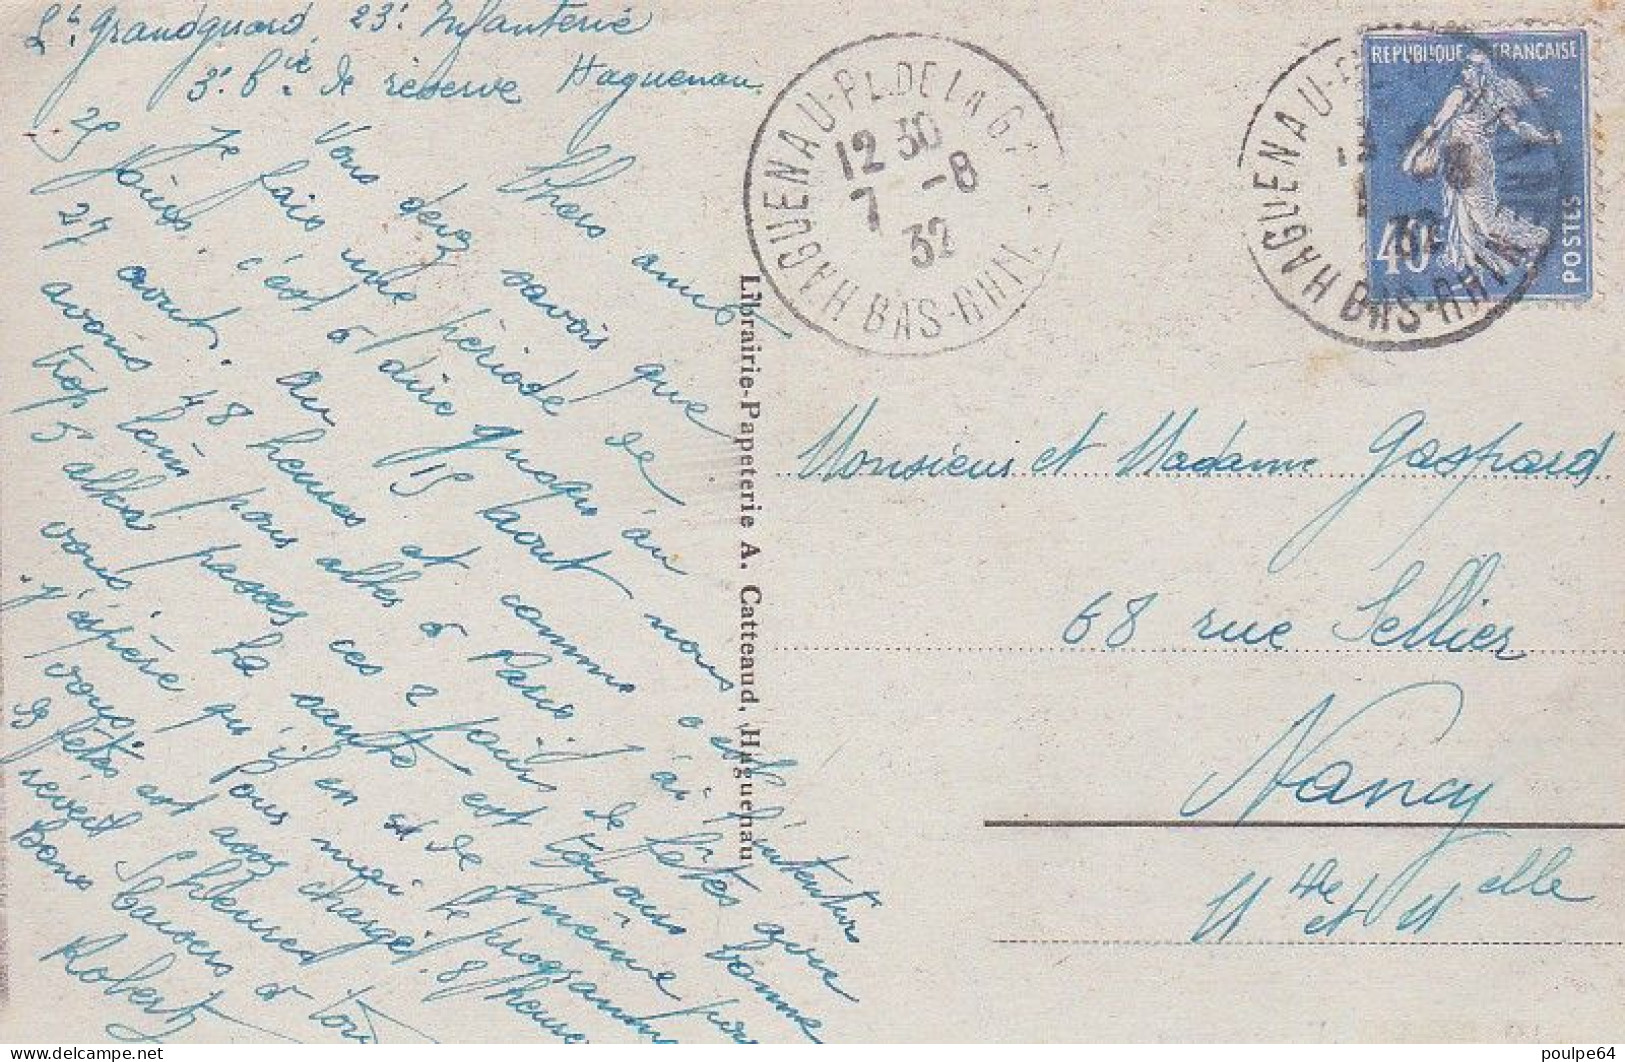 Lt. Grandguard, 23e Infanterie
3e Cie de réserve Haguenau
Chers amis
Vous devez savoir que
Je fais une période de
25 jours, c'est à dire jusqu'au
27 aout. Au 15 aout nous
avons 48 heures et comme c'est
trop loin pour aller à Paris j'ai l'intention
d'aller passer ces 2 jours de fêtes avec
vous. La santé est toujours bonne
j'espère qu'il en est de même pour
vous. Pour moi le programme
des fêtes est assez chargé. 8 heures
réveil
Bons baisers à tous
Robert
HAGUENAU-PL.DE LA G
12 30
7 -8
32
BAS-RHIN
HAGUENAU
32
BAS-RHIN
REPUBLIQUE FRANÇAISE
40
POSTES
Librairie-Papeterie A. Catteaud, Haguenau
Monsieur et Madame Gaspard
68 rue Sellier
Nancy
Mthe et Mselle
poulpe64